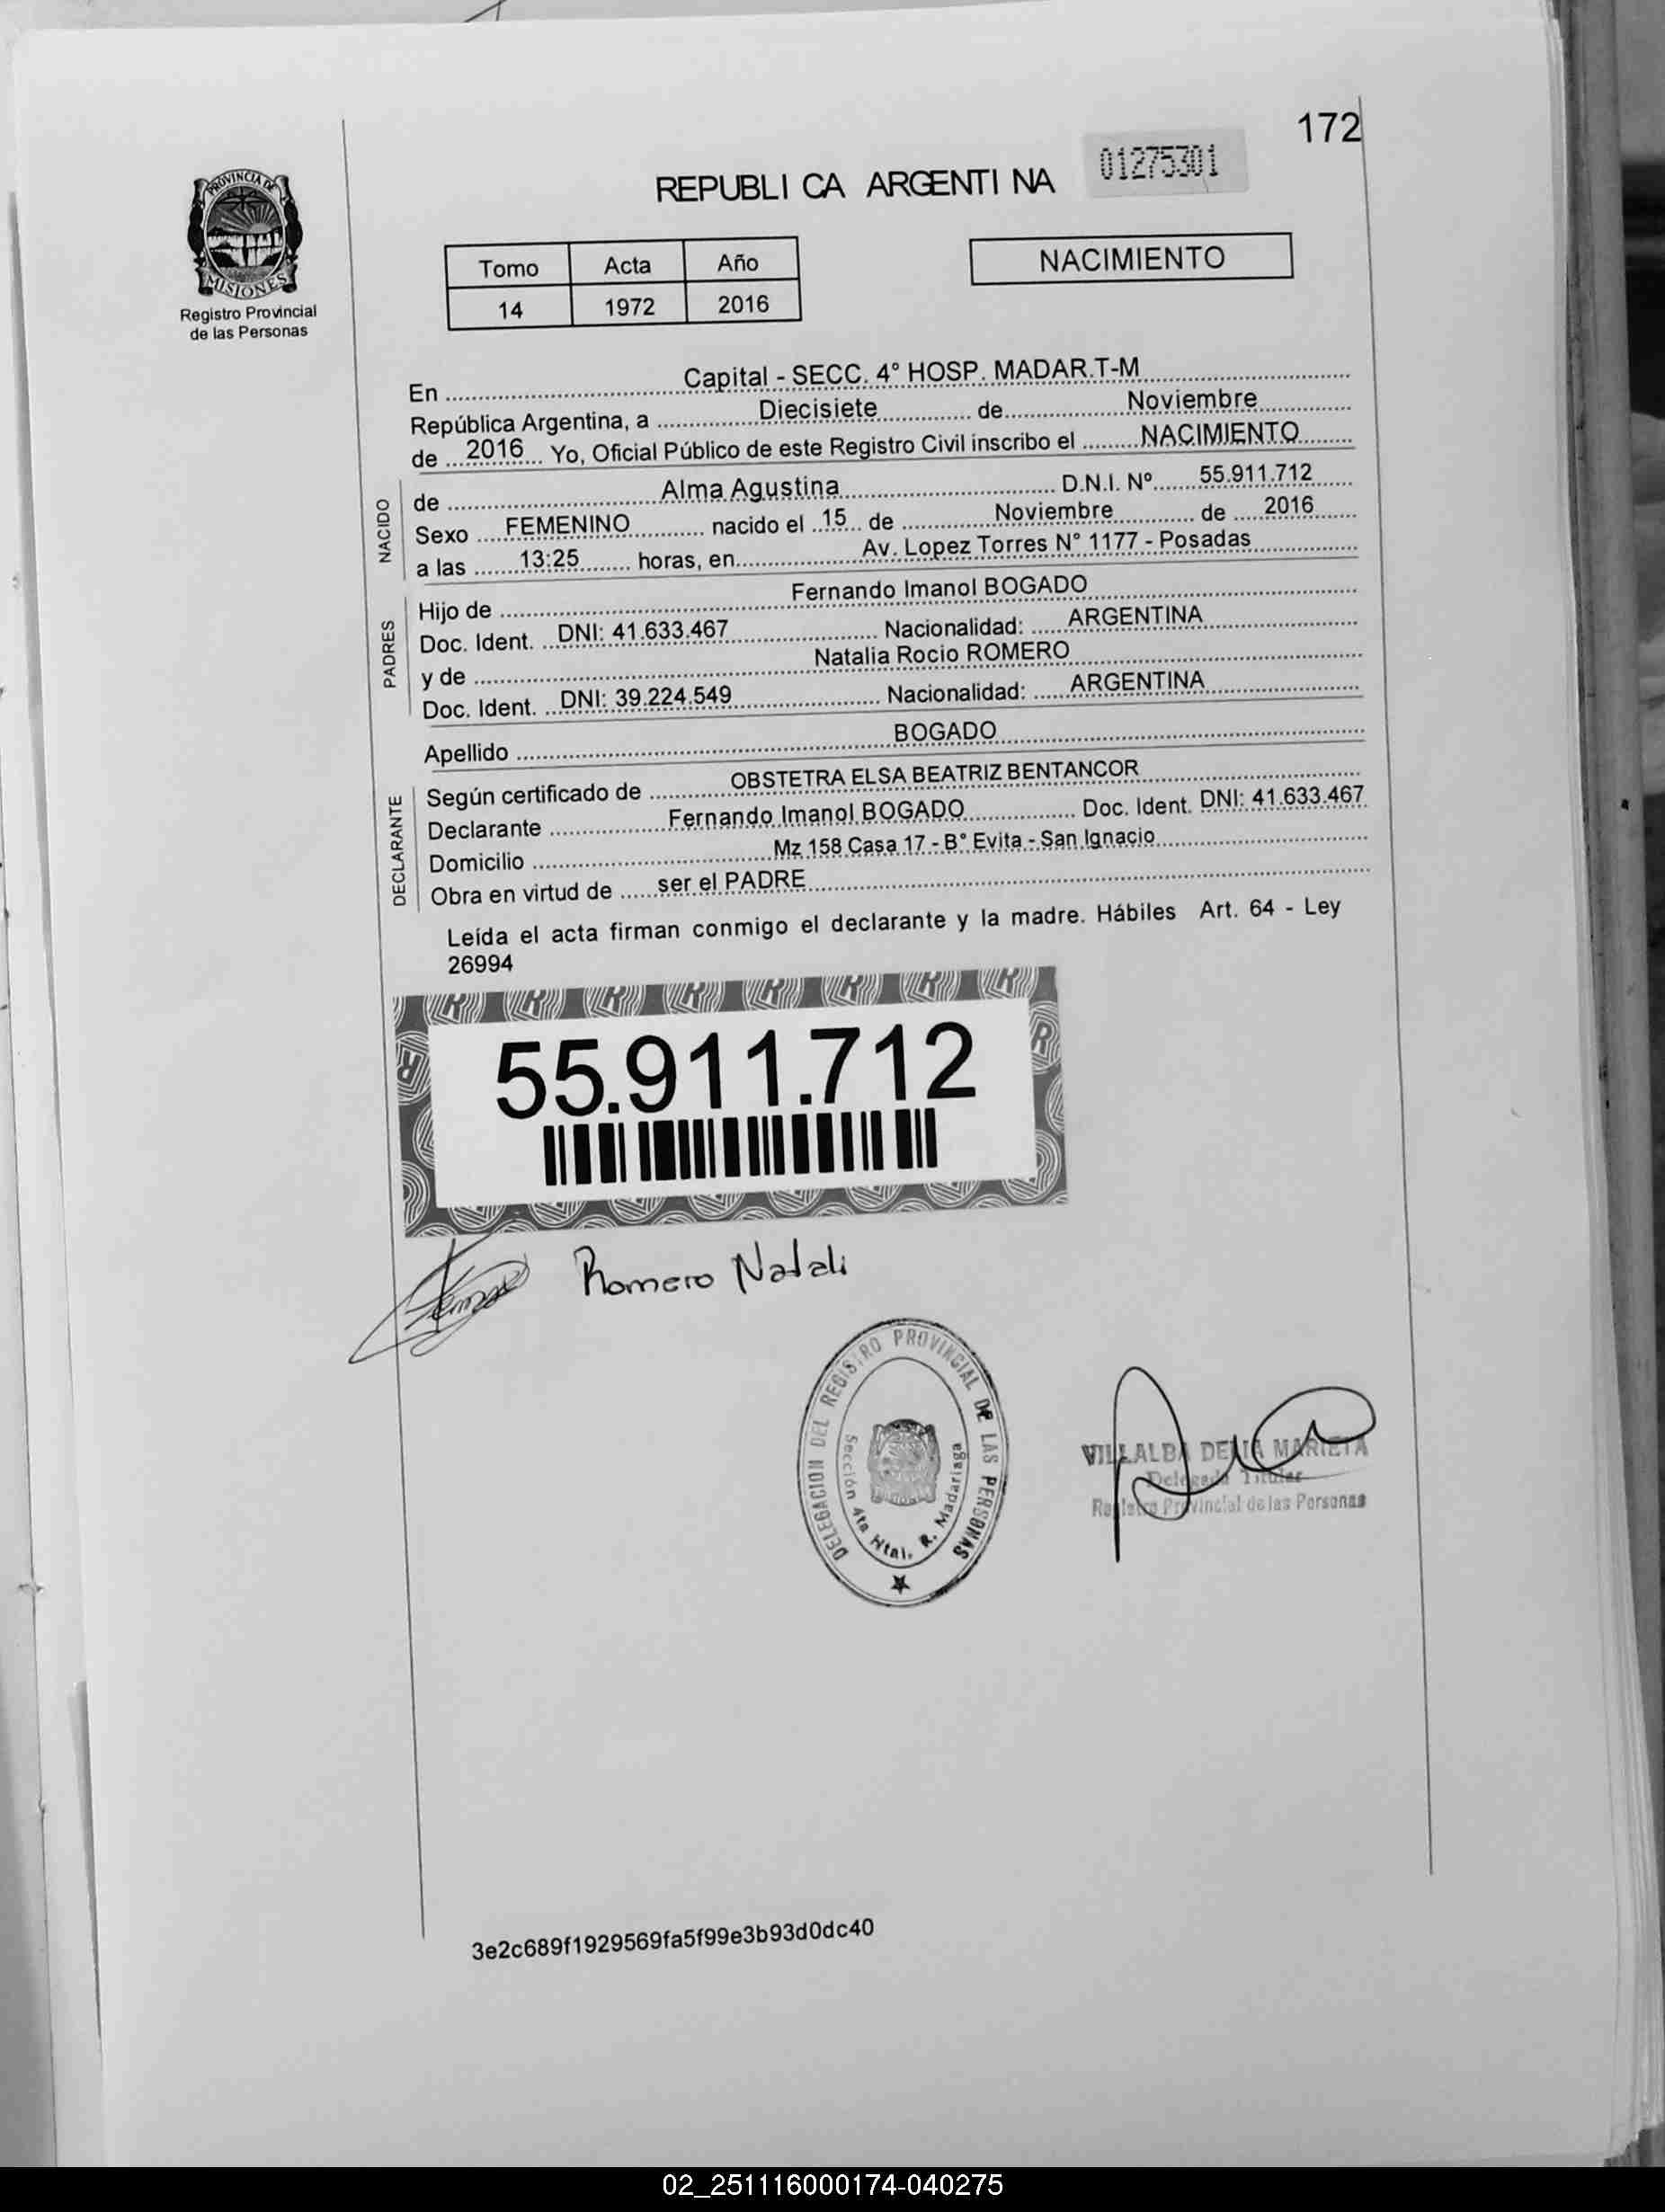 172
01275301
REPUBLICA ARGENTINA
PROVINCIA DE
MISIONES
Registro Provincial
de las Personas
Tomo Acta Año
14 1972 2016
NACIMIENTO
En Capital - SECC. 4° HOSP. MADAR.T-M
República Argentina, a Diecisiete de Noviembre
de 2016 Yo, Oficial Público de este Registro Civil inscribo el NACIMIENTO
NACIDO
de Alma Agustina D.N.I. Nº 55.911.712
Sexo FEMENINO nacido el 15 de Noviembre de 2016
a las 13:25 horas, en Av. Lopez Torres N° 1177 - Posadas
PADRES
Hijo de Fernando Imanol BOGADO
Doc. Ident. DNI: 41.633.467 Nacionalidad: ARGENTINA
y de Natalia Rocio ROMERO
Doc. Ident. DNI: 39.224.549 Nacionalidad: ARGENTINA
Apellido BOGADO
DECLARANTE
Según certificado de OBSTETRA ELSA BEATRIZ BENTANCOR
Declarante Fernando Imanol BOGADO Doc. Ident. DNI: 41.633.467
Domicilio Mz 158 Casa 17 - B° Evita - San Ignacio
Obra en virtud de ser el PADRE
Leída el acta firman conmigo el declarante y la madre. Hábiles Art. 64 - Ley
26994
55.911.712
Romero Natali
DELEGACION DEL REGISTRO PROVINCIAL DE LAS PERSONAS
Sección 4ta Htal. R. Madariaga
VILLALBA DELIA MARIETA
Delegada Titular
Registro Provincial de las Personas
3e2c689f1929569fa5f99e3b93d0dc40
02_251116000174-040275